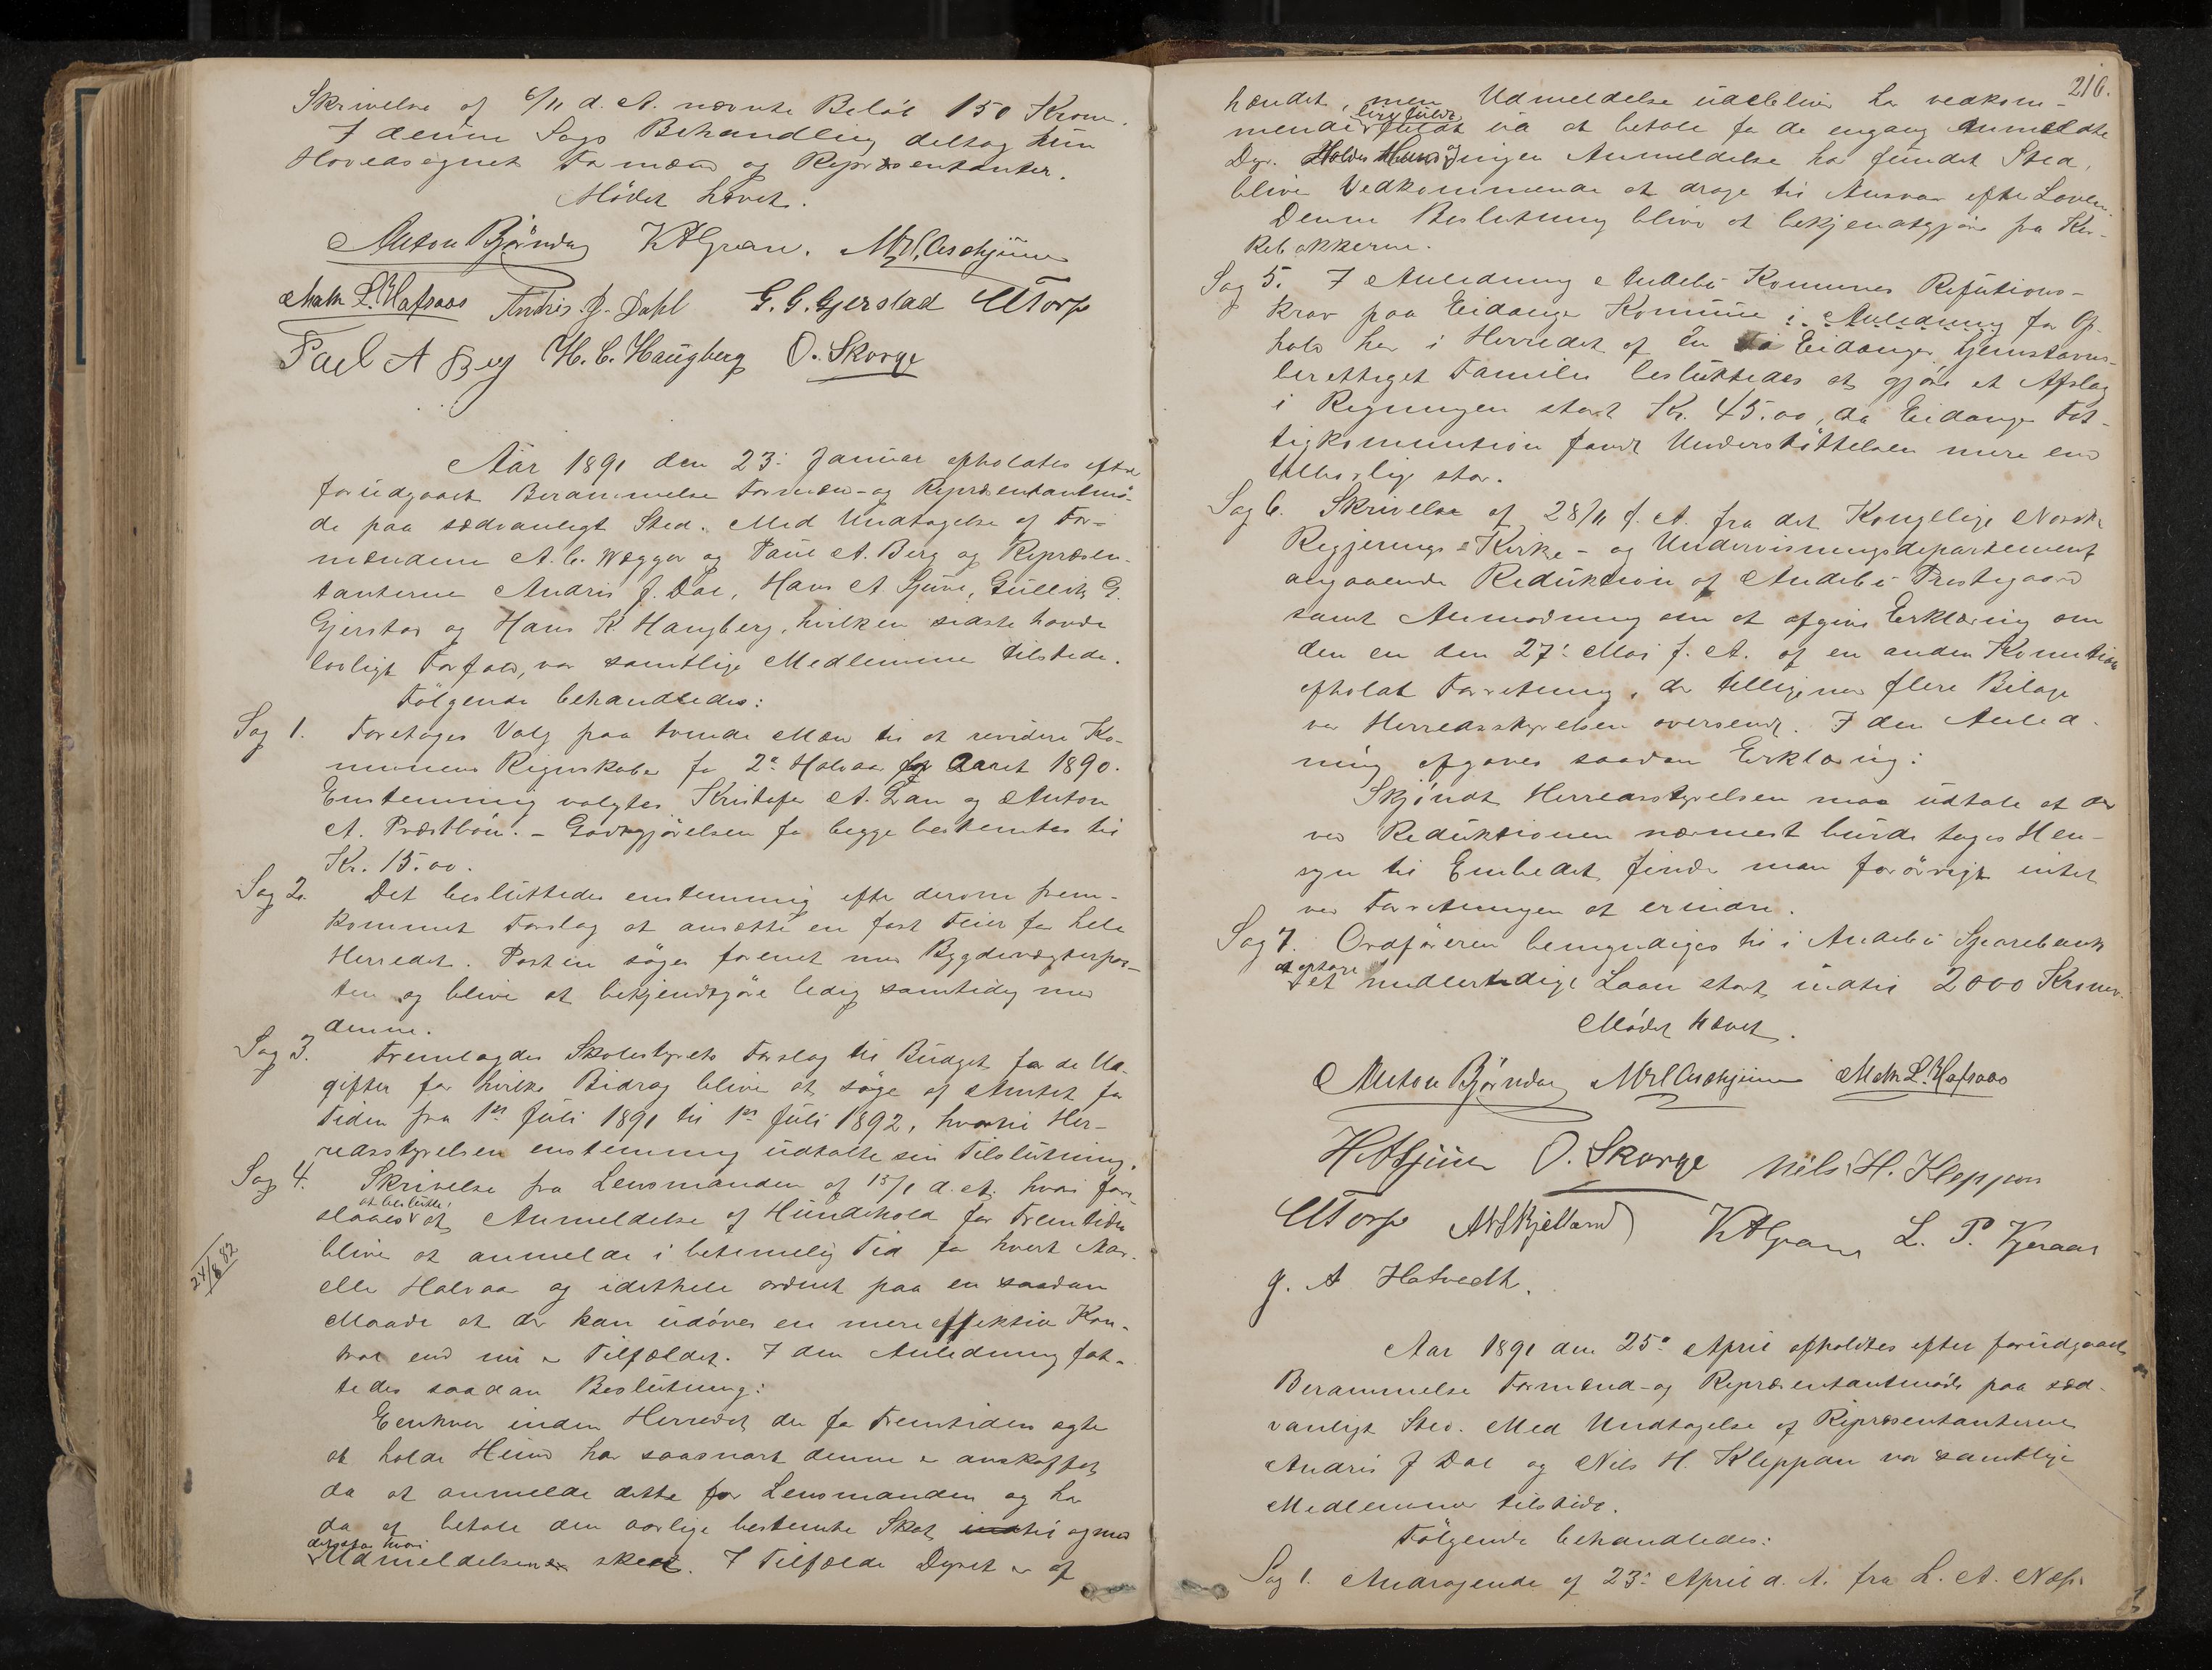 Skrivelse af 6/11 d. A. nævnte Beløb 150 Kroner.
I denne Sags Behandling deltog kun
Hovedsognets Formænd og Repræsentanter.
Mødet hævet.
Anton Bjöndag K A Gran. M L Aschjem
Math L. Hafsaas Andris J. Dahl G. G. Gjerstad Torp
Paul A Berg H. C. Haugberg O. Skorge
Aar 1891 den 23: Januar afholdtes efter
forudgaaet Berammelse Formæn- og Repræsentantmø-
de paa sædvanligt Sted. Med Undtagelse af For-
mændene A. C. Wegger og Paul A. Berg og Repræsen-
tanterne Andris J. Dal, Hans A. Sjue, Gullik G.
Gjerstad og Hans K. Haugberg, hvilken sidste havde
lovligt Forfald, var samtlige Medlemmer tilstede.
Følgende behandledes:
Sag 1. Foretoges Valg paa tvende Mænd til at revidere Ko-
munens Regnskaber for 2e Halvaar for Aaret 1890.
Enstemmig valgtes Kristofer A. Lan og Anton
A. Præstbøn. – Godtgjørelsen for begge bestemtes til
Kr. 15.00.
Sag 2. Det besluttedes enstemmig efter derom frem-
kommet Forslag at ansætte en fast Feier for hele
Herredet. Posten søges forenet med Bygdevægterpos-
ten og bliver at bekjendtgjøre ledig samtidig med
denne.
Sag 3. Fremlagdes Skolestyrets Forslag til Budget for de Ud-
gifter for hvilke Bidrag bliver at søge af Amtet for
Tiden fra 1ste Juli 1891 til 1ste Juli 1892, hvortil Her-
redsstyrelsen enstemmig udtalte sin Tilslutning.
Sag 4. Skrivelse fra Lensmanden af 15/1 d. A. hvori fore-
at beslutte,
slaaes at Anmeldelse af Hundehold for Fremtiden
bliver at anmelde i betimelig Tid for hvert Aar
24/6 82
eller Halvaar og idethele ordnet paa en saadan
Maade at der kan udøves en mere effektiv Kon-
trol end nu er Tilfældet. I den Anledning fat-
tedes saadan Beslutning:
Eenhver inden Herredet der for Fremtiden agter
at holde Hund har saasnart denne er anskaffet
da at anmelde dette for Lensmanden og har
da at betale den aarlige bestemte Skat indtil og med
det Aar hvori
Udmeldelsen er skeet. I Tilfælde Dyret er af
216.
hændet, men Udmeldelse udebliver har vedkom-
ligefuldt
mende fuldt ud at betale for de engang anmeldte
Dyr. Holdes Hund og ingen Anmeldelse har fundet Sted,
bliver Vedkommende at drage til Ansvar efter Loven.
Denne Beslutning bliver at bekjendtgjøre fra Kir-
kebakkerne.
Sag 5. I Anledning Andebu Kommunes Refutions-
krav paa Eidanger Kommune i Anledning for Op-
hold her i Herredet af en i Eidanger hjemstavns-
berettiget Familie besluttedes at gjøre et Afslag
i Regningen stort Kr. 45.00, da Eidanger Fat-
tigkommission fandt Understøttelsen mere end
tilbørlig stor.
Sag 6. Skrivelse af 28/11 f. A. fra det Kongelige Norske
Regjerings Kirke- og Undervisningsdepartement
angaaende Reduktion af Andebu Prestegaard
samt Anmodning om at afgive Erklæring om
den en den 27: Mai f. A. af en anden Komission
afholdt Forretning, der tilligemed flere Bilage
var Herredsstyrelsen oversendt. I den Anled-
ning afgaves saadan Erklæring:
Skjøndt Herredsstyrelsen maa udtale at der
ved Reduktionen nærmest burde tages Hen-
syn til Embedet finder man forøvrigt intet
ved Forretningen at erindre.
Sag 7. Ordføreren bemyndiges til i Andebu Sparebank
at optage
et midlertidigt Laan stort indtil 2000 Kroner.
Mødet hævet.
Anton Bjöndag M L Aschjem Math L. Hafsaas
H A Sjue O. Skorge Nils H. Kleppan
Torp A Skjelland K A Gran L. P. Kjeraas
G. A Hotvedt.
Aar 1891 den 25e April afholdtes efter forudgaaet
Berammelse Formænd- og Repræsentantmøde paa sæd-
vanligt Sted. Med Undtagelse af Repræsentanterne
Andris J Dal og Nils H. Kleppan var samtlige
Medlemmer tilstede.
Følgende behandledes:
Sag 1. Andragende af 23: April d. A. fra L. A. Næs